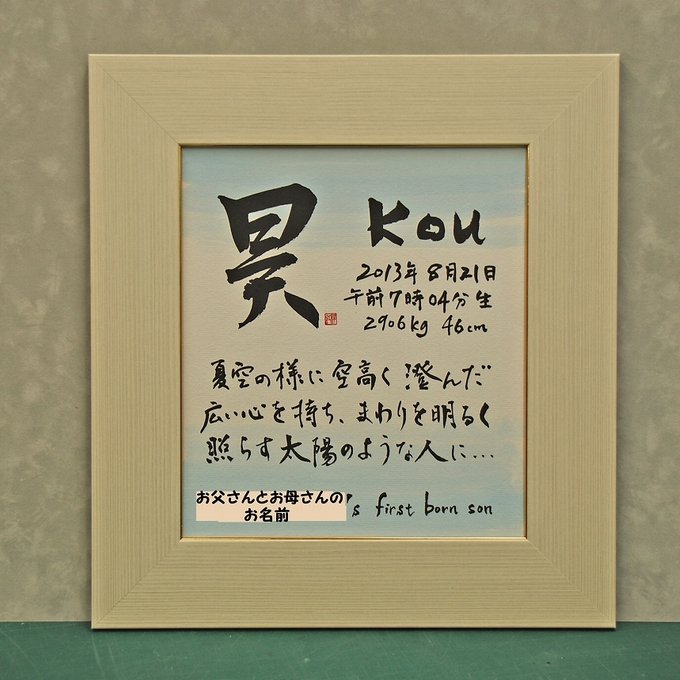 昊
Kou
2013年8月21日
午前7時04分生
2906kg 46cm
夏空の様に空高く澄んだ
広い心を持ち、まわりを明るく
照らす太陽のような人に...
お父さんとお母さんの
お名前
's first born son